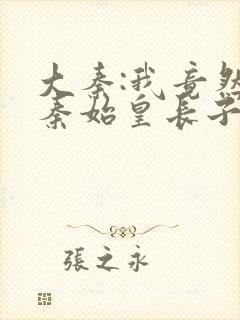 大秦:我竟然
秦始皇长子
張之永